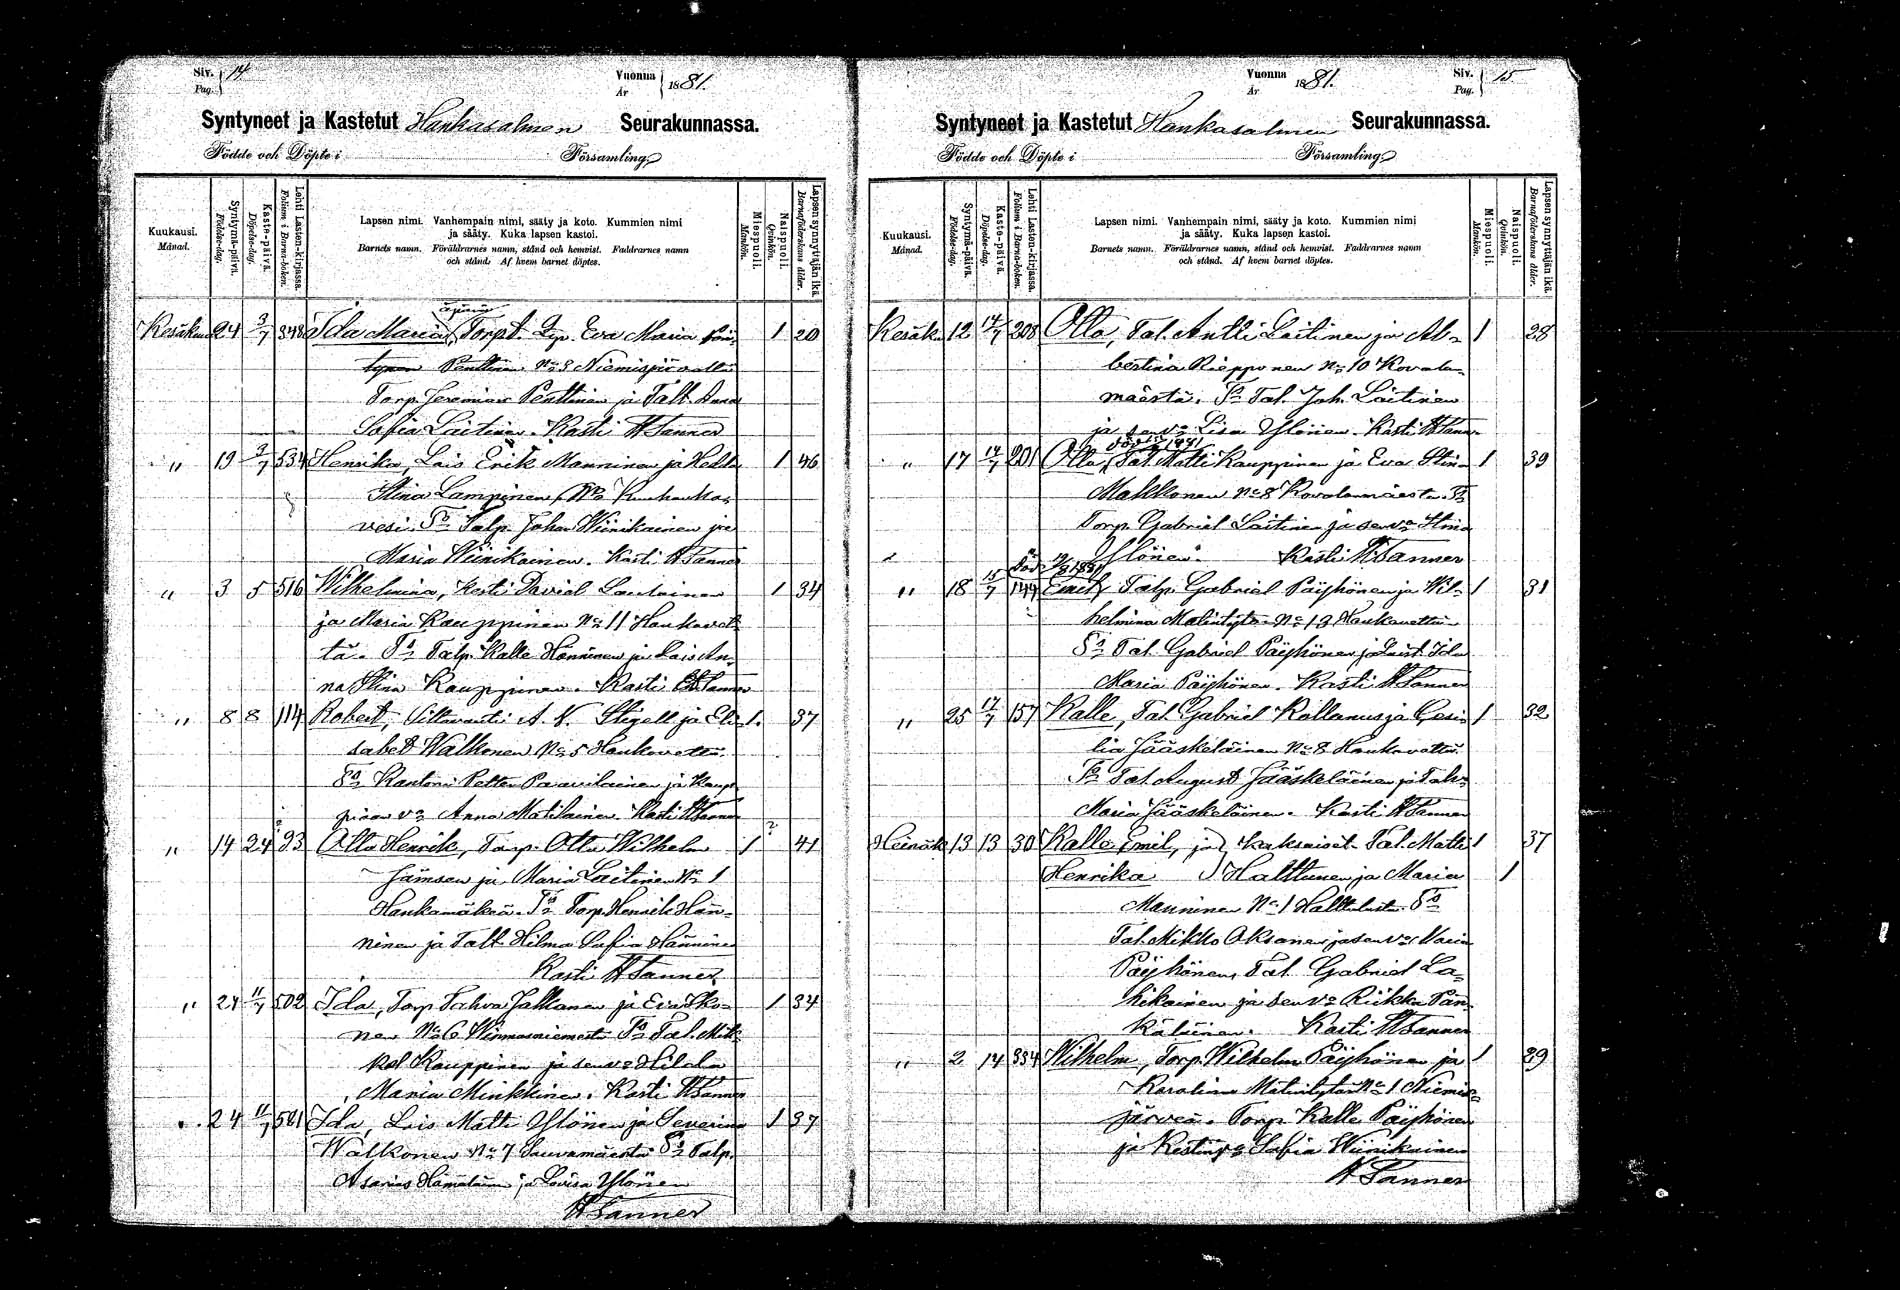 Siv. 14
Pag.
Vuonna 1881.
År
Syntyneet ja Kastetut Hankasalmen Seurakunnassa.
Födde och Döpte i Församling
Kuukausi. Månad.
Syntymä-päivä. Födelse-dag.
Kaste-päivä. Döpelse-dag.
Lehti Lasten-kirjassa. Folium i Barna-boken.
Lapsen nimi. Vanhempain nimi, sääty ja koto. Kummien nimi
ja sääty. Kuka lapsen kastoi.
Barnets namn. Föräldrarnes namn, stånd och hemvist. Faddrarnes namn
och stånd. Af hvem barnet döptes.
Miespuoli. Mankön.
Naispuoli. Qvinkön.
Lapsen synnyttäjän ikä. Barnaföderskans ålder.
Kesäkuu 24 3/7 348 Ida Maria, Torp. Eva Maria 1 20
Penttinen No 8 Niemisjärveltä
Torp. Jeremias Penttinen ja Talt. Anna
Sofia Laitinen. Kasti H Tanner
" 19 3/7 534 Henrika, Lois Erik Manninen ja Helena 1 46
Stina Lampinen,
vesi. Talp. Johan Wiinikainen ja
Maria Wiinikainen. Kasti H Tanner
" 3 5 516 Wilhelmina, Kesti David Lautainen 1 34
ja Maria Kauppinen No 11 Hankavet-
tä. Talp. Kalle Hänninen ja Lois An-
na Stina Kauppinen. Kasti H Tanner
" 8 8 114 Robert, A. N. Stigell ja Eli- 1. 37
sabet Walkonen No 5 Hankavettä.
Kanttori Petter Paavilainen ja Kaup-
piaan va Anna Matilainen. Kasti H Tanner
" 14 24 93 Otto Henrik, Torp. Otto Wilhelm 1 41
Jämsen ja Maria Laitinen No 1
Hankamäkeä. Torp. Henrik Hän-
ninen ja Talt. Hilma Sofia Hänninen
Kasti H Tanner
" 24 11/7 502 Ida, Torp. Tahvo Jalkanen ja Eva 1 34
nen No 6 Talp.
Kauppinen ja sen va Hilda
Maria Minkkinen. Kasti H Tanner
" 24 11/7 501 Ida, Lois Matti Ylönen ja Severina 1 37
Walkonen No 7 Sauvamäestä Talp.
Asarias Hämäläinen ja Lovisa Ylönen
H Tanner
Vuonna 1881.
År
Siv. 15
Pag.
Syntyneet ja Kastetut Hankasalmen Seurakunnassa.
Födde och Döpte i Församling
Kuukausi. Månad.
Syntymä-päivä. Födelse-dag.
Kaste-päivä. Döpelse-dag.
Lehti Lasten-kirjassa. Folium i Barna-boken.
Lapsen nimi. Vanhempain nimi, sääty ja koto. Kummien nimi
ja sääty. Kuka lapsen kastoi.
Barnets namn. Föräldrarnes namn, stånd och hemvist. Faddrarnes namn
och stånd. Af hvem barnet döptes.
Miespuoli. Mankön.
Naispuoli. Qvinkön.
Lapsen synnyttäjän ikä. Barnaföderskans ålder.
Kesäku 12 14/7 208 Otto, Tal. Antti Laitinen ja Al- 1 28
bertina Rieppönen No 10 Kovalan-
mäestä. Tal. Joh. Laitinen
ja sen va Lisa Ylönen. Kasti H Tanner
" 17 14/7 201 Otto, Tal. Matti Kauppinen ja Eva Stina 1 39
Makkonen No 8 Kovalanmäestä.
Torp. Gabriel Laitinen ja sen va Stina
Ylönen. Kasti H Tanner
" 18 15/7 144 Emil, Talp. Gabriel Päyhönen ja Wil- 1 31
helmina Matintytär No 13 Hankavettä.
Tal. Gabriel Päyhönen ja Ida
Maria Päyhönen. Kasti H Tanner
" 25 17/7 157 Kalle, Tal. Gabriel Kollanus ja Cesi- 1 32
lia Jääskeläinen No 8 Hankavettä.
Tal. August Jääskeläinen ja
Maria Jääskeläinen. Kasti H Tanner
Heinäk 13 13 30 Kalle Emil, ja kaksoiset. Tal. Matti 1 37
Henrika Halttunen ja Maria 1
Manninen No 1
Tal. Mikko Oksanen ja sen va Maria
Päyhönen, Tal. Gabriel La-
hikainen ja sen va Riikka Pan-
käläinen. Kasti H Tanner
" 2 14 334 Wilhelm, Torp. Wilhelm Päyhönen ja 1 29
Karolina Matintytär No 1 Niemis-
järveä. Torp. Kalle Päyhönen
ja Kestin va Sofia Wiinikainen
H Tanner